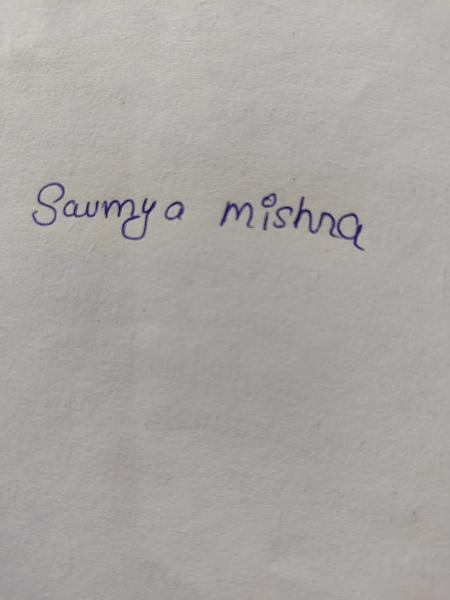 Saumya mishra